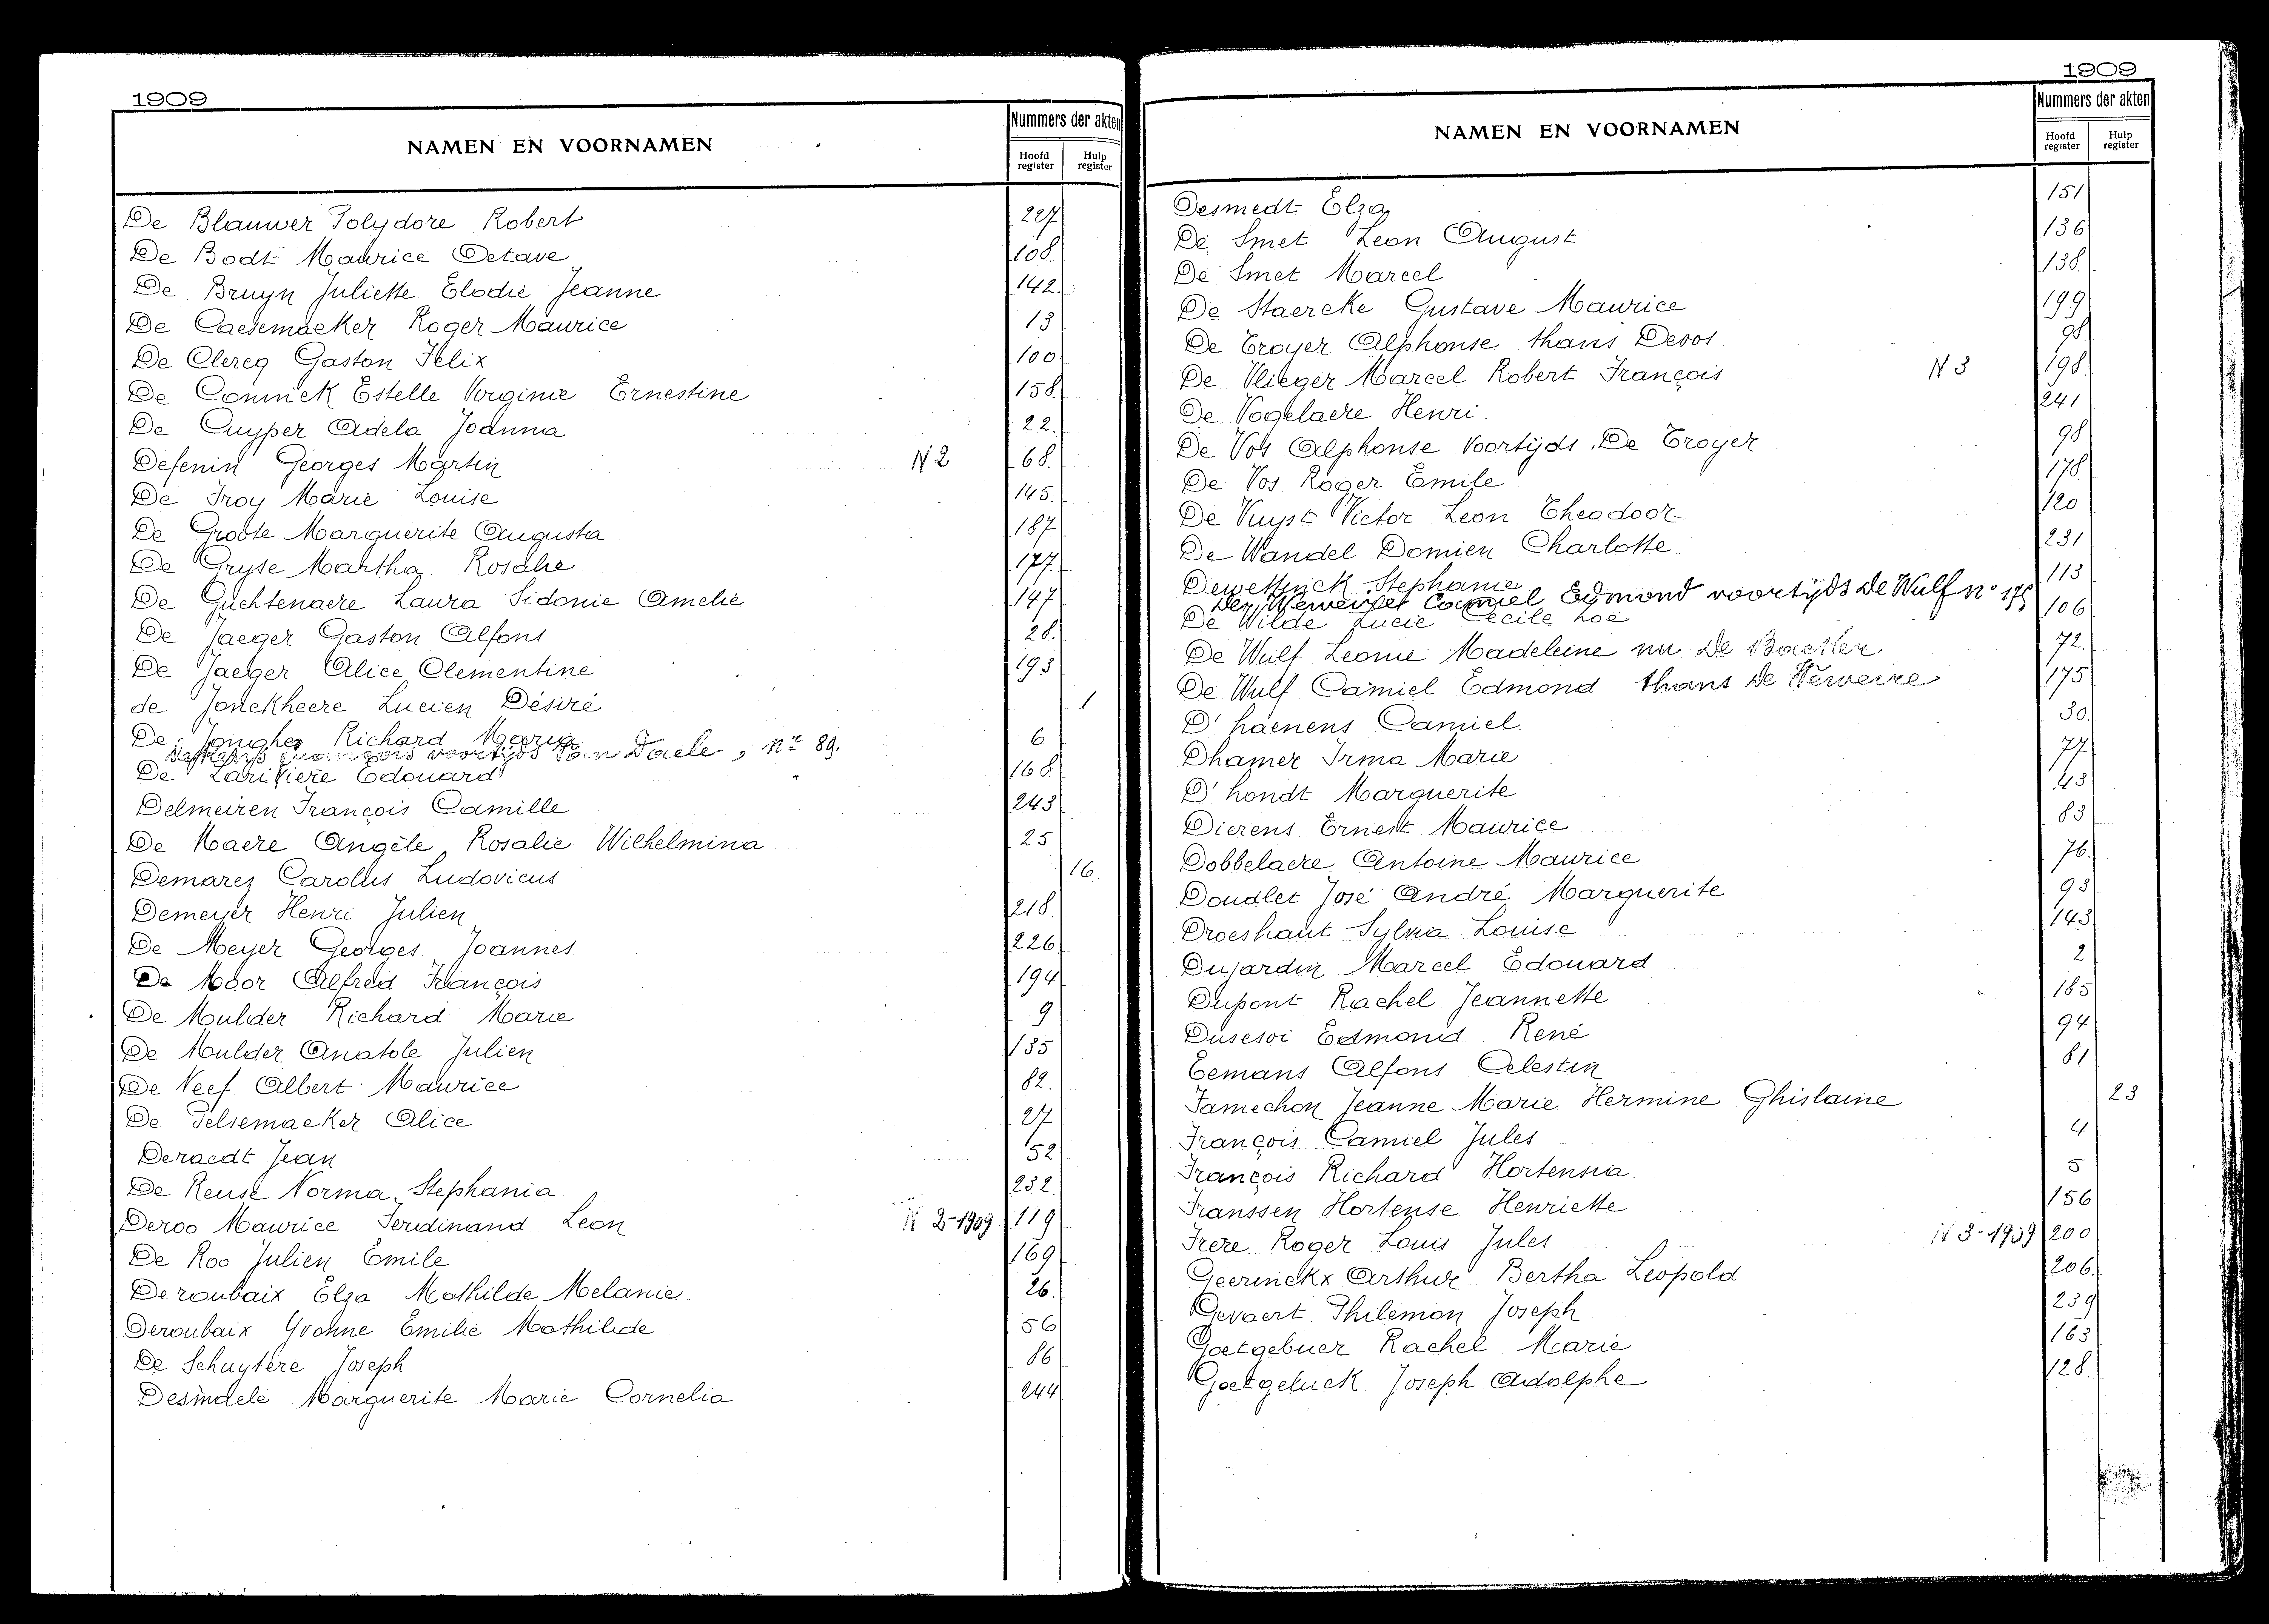 1909
NAMEN EN VOORNAMEN
Nummers der akten
Hoofd register
Hulp register
De Blauwer Polydore Robert 227
De Bodt Maurice Octave 108.
De Bruyn Juliette Elodie Jeanne 142.
De Caesemaeker Roger Maurice 13
De Clercq Gaston Felix 100
De Coninck Estelle Virginie Ernestine 158.
De Cuyper Adela Joanna 22.
Defenin Georges Martin N 2 68.
De Froy Marie Louise 145.
De Groote Marguerite Augusta 187
De Gryse Martha Rosalie 177
De Guchtenaere Laura Sidonie Amelie 147
De Jaeger Gaston Alfons 28.
De Jaeger Alice Clementine 193
de Jonckheere Lucien Désiré 1
De Jonghe Richard Maria 6
François voortijds Van Daele, nr 89.
De Larivière Edouard 168.
Delmeiren François Camille 243
De Maere Angèle Rosalie Wilhelmina 25
Demarez Carolus Ludovicus 16.
Demeyer Henri Julien 218.
De Meyer Georges Joannes 226.
De Moor Alfred François 194
De Mulder Richard Marie 9
De Mulder Anatole Julien 135
De Neef Albert Maurice 82.
De Pelsemaeker Alice 27
Deraedt Jean 52
De Reuse Norma Stephania 232.
Deroo Maurice Ferdinand Leon N 2-1909 119
De Roo Julien Emile 169
Deroubaix Elza Mathilde Melanie 26.
Deroubaix Yvonne Emilie Mathilde 56
De Schuytere Joseph 86
Desmdele Marguerite Marie Cornelia 244
1909
NAMEN EN VOORNAMEN
Nummers der akten
Hoofd register
Hulp register
Desmedt Elza 151
De Smet Leon August 136
De Smet Marcel 138.
De Staercke Gustave Maurice 199
De Troyer Alphonse thans Devos 98.
De Vlieger Marcel Robert François N 3 198.
De Vogelaere Henri 241
De Vos Alphonse voortijds De Troyer 98.
De Vos Roger Emile 178.
De Vuyst Victor Leon Theodoor 120
De Wandel Domien Charlotte 231
Dewettinck Stephanie 113
De Werveire Camiel Edmond voortijds De Wulf n° 175
De Wilde Lucie Cecile Zoë 106
De Wulf Leonie Madeleine nu De Backer 72.
De Wulf Camiel Edmond thans De Werveire 175
D'haenens Camiel 30.
Dhamer Irma Marie 77
D'hondt Marguerite 43
Dierens Ernest Maurice 83
Dobbelaere Antoine Maurice 76.
Doudlet José André Marguerite 93
Droeshaut Sylvia Louise 143
Dujardin Marcel Edouard 2
Dupont Rachel Jeannette 185
Dusesoi Edmond René 94
Eemans Alfons Celestin 81
Famechon Jeanne Marie Hermine Ghislaine 23
François Camiel Jules 4
François Richard Hortensia 5
Franssen Hortense Henriette 156
Frere Roger Louis Jules N 3-1909 200
Geerinckx Arthur Bertha Leopold 206.
Gevaert Philemon Joseph 239
Goetgebuer Rachel Marie 163
Goetgeluck Joseph Adolphe 128.